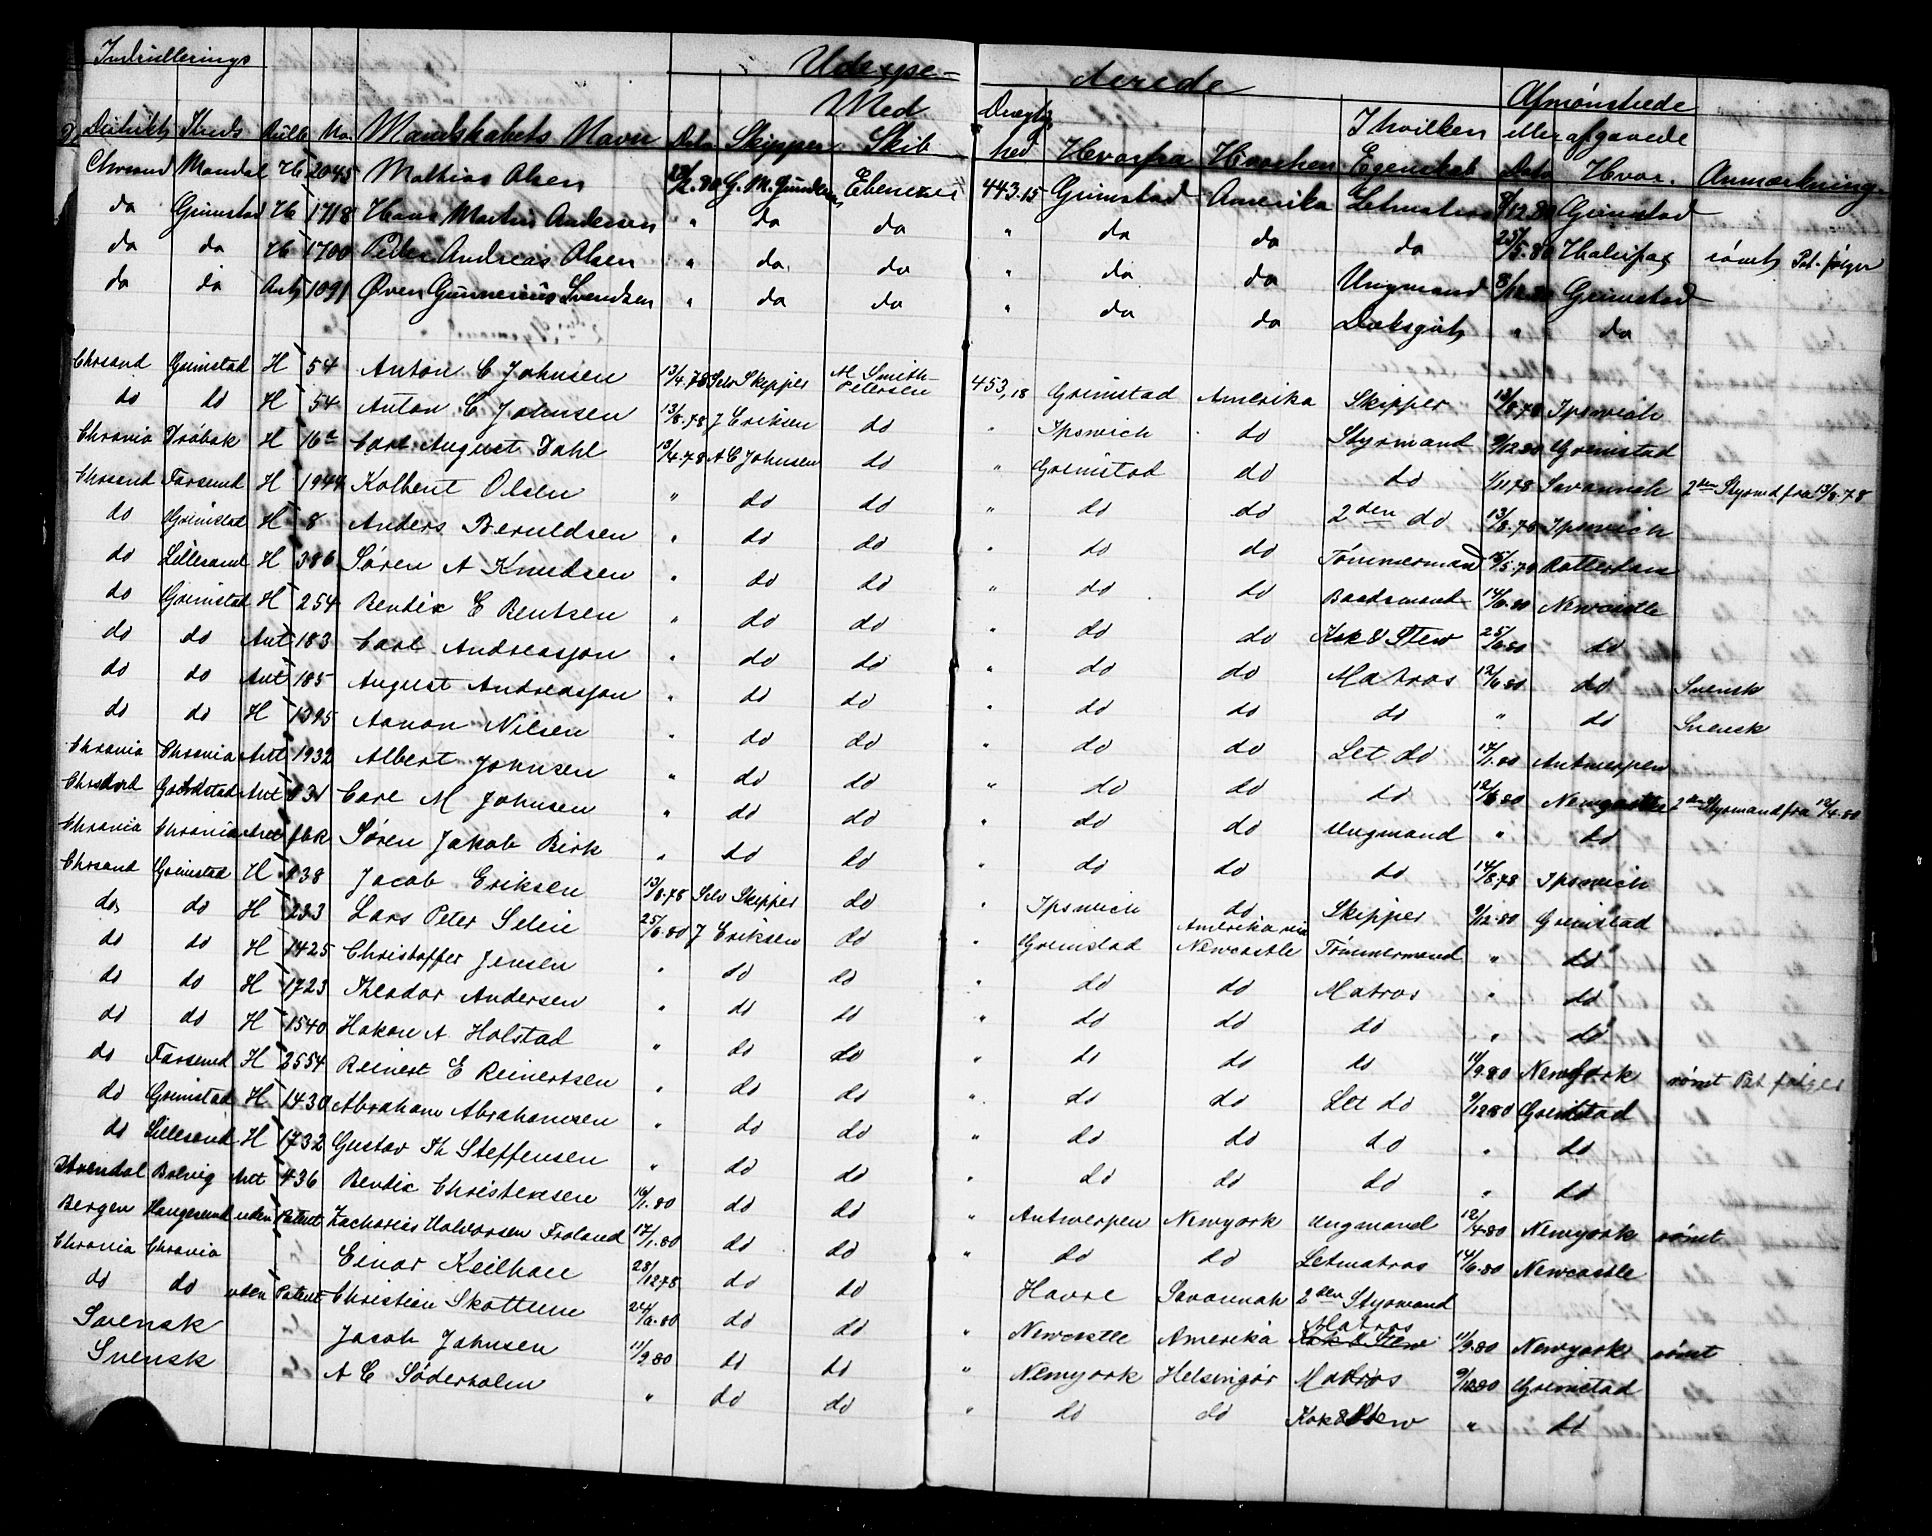 Indrullerings Udexpe= derede
Med Afmønstrede
Distrikt Kreds Rulle No. Mandskabets Navn Dato Skipper Skib Drægtighed Hvorfra Hvorhen I hvilken Egenskab eller afgaaede Dato Hvor. Anmærkning.
Chrsand Mandal H 2045 Mathias Olsen G. M. Ebenezer 443.15 Grimstad Amerika Letmatros 8/12.80 Grimstad
da Grimstad H 1718 Hans Martin Andersen " da da " da da da 25/5.80 Halifax rømt, Pat. følger
da da H 1700 Peder Andreas Olsen " da da " da da Ungmand 8/12.80 Grimstad
da da Ant 1091 Øven Gunnerius Svendsen " da da " da da Dæksgut " da
Chrsand Grimstad H 54 Anton C Johnsen 13/4.78 Selv Skipper M Smith-Petersen 453,18 Grimstad Amerika Skipper 13/8.78 Ipswich
do do H 54 Anton C Johnsen 13/8.78 J Eriksen do " Ipswich do Styrmand 9/12.80 Grimstad
Chrania Drøbak H 16a Carl August Dahl 13/4.78 A C Johnsen do " Grimstad do do 1/11.78 Savannah 2den Styrmd fra 13/8.78
Chrsand Farsund H 1944 Kolbent Olsen " do do " do do 2den do 13/8.78 Ipswich
do Grimstad H 8 Anders Beruldsen " do do " do do Tømmermand Rotterdam
do Lillesand H 386 Søren A Knudsen " do do " do do Baadsmand 14/6.80 Newcastle
do Grimstad H 254 Bendix E Bentsen " do do " do do Kok & Stew 25/6.80 do
do do Ant 183 Carl Andreasson " do do " do do Matros 12/6.80 do Svensk
do do Ant 185 August Andreasson " do do " do do do " do Svensk
do do H 1395 Aanon Nilsen " do do " do do Let do 17/1.80 Antwerpen
Chrania Chrania Ant 1932 Albert Johnsen " do do " do do do 12/6.80 Newcastle 2den Styrmand fra 12/4.80
Chrsand Grimstad Ant 831 Carl M Johnsen " do do " do do Ungmand " do
Chrania Chrania Ant fbk Søren Jakob Birk " do do " do do do 14/8.78 Ipswich
Chrsand Grimstad H 238 Jacob Eriksen 13/8.78 Selv Skipper do " Ipswich do Skipper 9/12.80 Grimstad
do do H 233 Lars Peter Selin 25/6.80 J Eriksen do " Grimstad Amerika via Newcastle Tømmermand " do
do do H 1425 Christoffer Jensen " do do " do do Matros " do
do do H 1723 Theodor Andersen " do do " do do do " do
do do H 1540 Hakon A. Holstad " do do " do do do 11/9.80 Newyork rømt Pat følger
do Farsund H 2554 Reinert E Reinertsen " do do " do do Let do 9/12.80 Grimstad
do Grimstad H 1430 Abraham Abrahamsen " do do " do do do " do
do Lillesand H 1732 Gustav Th Steffensen " do do " do do do " do
Arendal Bolvig Ant 436 Bendix Christensen 16/1.80 do do " Antwerpen Newyork Ungmand 12/4.80 Newyork rømt
Bergen Haugesund uden Patent Zacharias Halvorsen Froland 17/1.80 do do " do do Letmatros 14/6.80 Newcastle
Chrania Chrania Einar Keilhau 28/12.78 do do Havre Savannah 2den Styrmand
do do uden Patent Christian Skottun 24/6.80 do do " Newcastle Amerika Matros Kok & Stew 11/9.80 Newyork rømt
Svensk Jacob Johnsen 11/9.80 do do " Newyork Helsingør Matros 9/12.80 Grimstad
Svensk A C Söderholm " do do " do do Kok & Stew " do